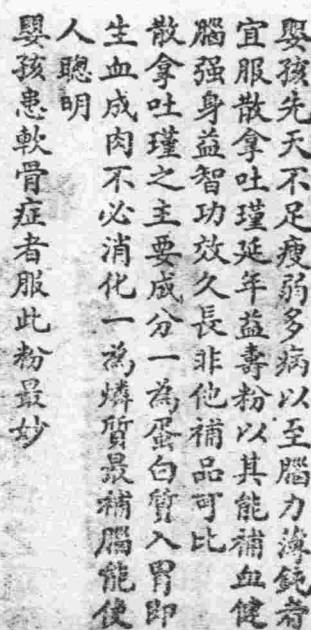 嬰孩先天不足瘦弱多病以至腦力薄鈍者
宜服散拿吐瑾延年益壽粉以其能補血健
腦强身益智功效久長非他補品可比
散拿吐瑾之主要成分一為蛋白質入胃即
生血成肉不必消化一為燐質最補腦能使
人聰明
嬰孩患軟骨症者服此粉最妙